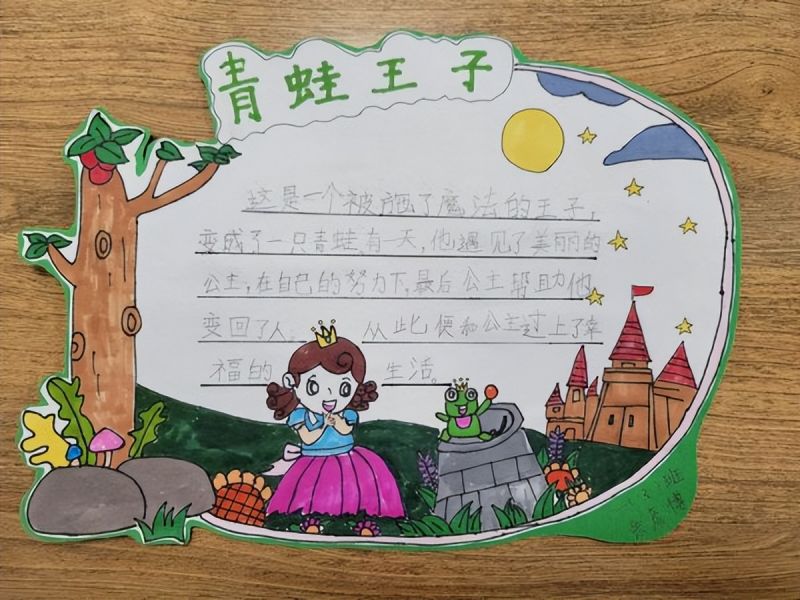 青蛙王子
这是一个被施了魔法的王子,
变成了一只青蛙,有一天,他遇见了美丽的
公主,在自己的努力下,最后公主帮助他
变回了人 从此便和公主过上了幸
福的 生活。
班